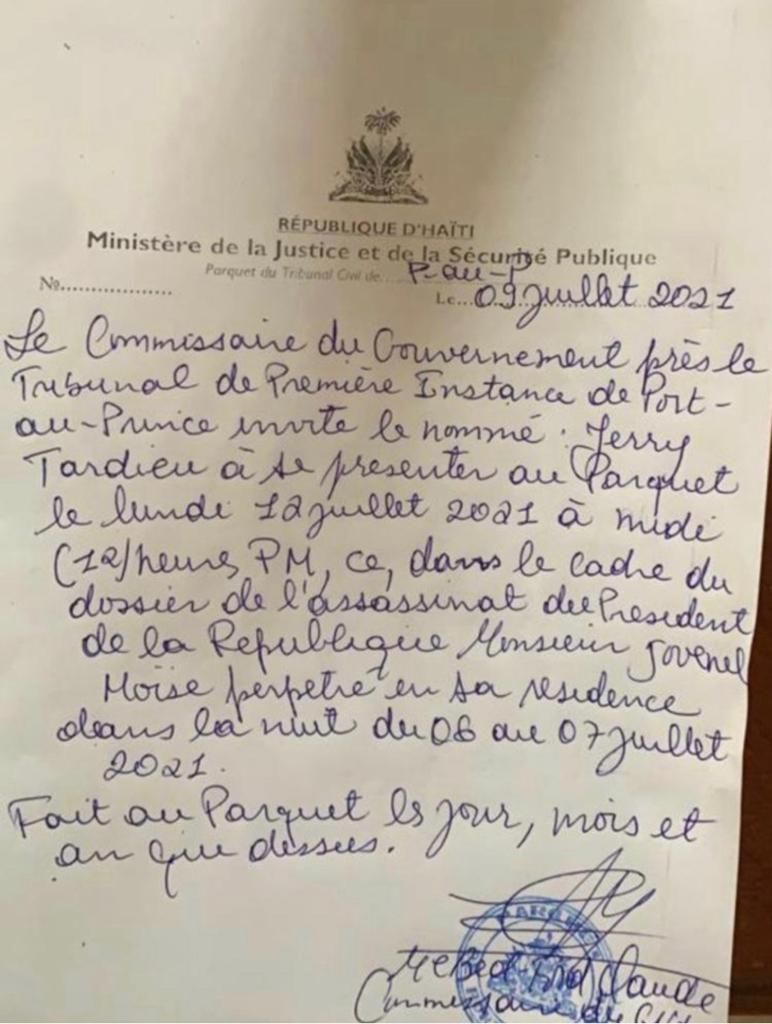 RÉPUBLIQUE D'HAÏTI
Ministère de la Justice et de la Sécurité Publique
Parquet du Tribunal Civil de.... P-au-P
No..................
Le...09 juillet 2021
Le Commissaire du Gouvernement près le
Tribunal de Première Instance de Port-
au-Prince invite le nommé : Jerry
Tardieu à se présenter au Parquet
le lundi 12 juillet 2021 à midi
(12) heures PM, ce, dans le cadre du
dossier de l'assassinat du President
de la République Monsieur Jovenel
Moïse perpetré en sa residence
dans la nuit du 06 au 07 juillet
2021.
Fait au Parquet les jour, mois et
an que dessus.
PARQUET
Me Bed-Ford Claude
Commissaire du